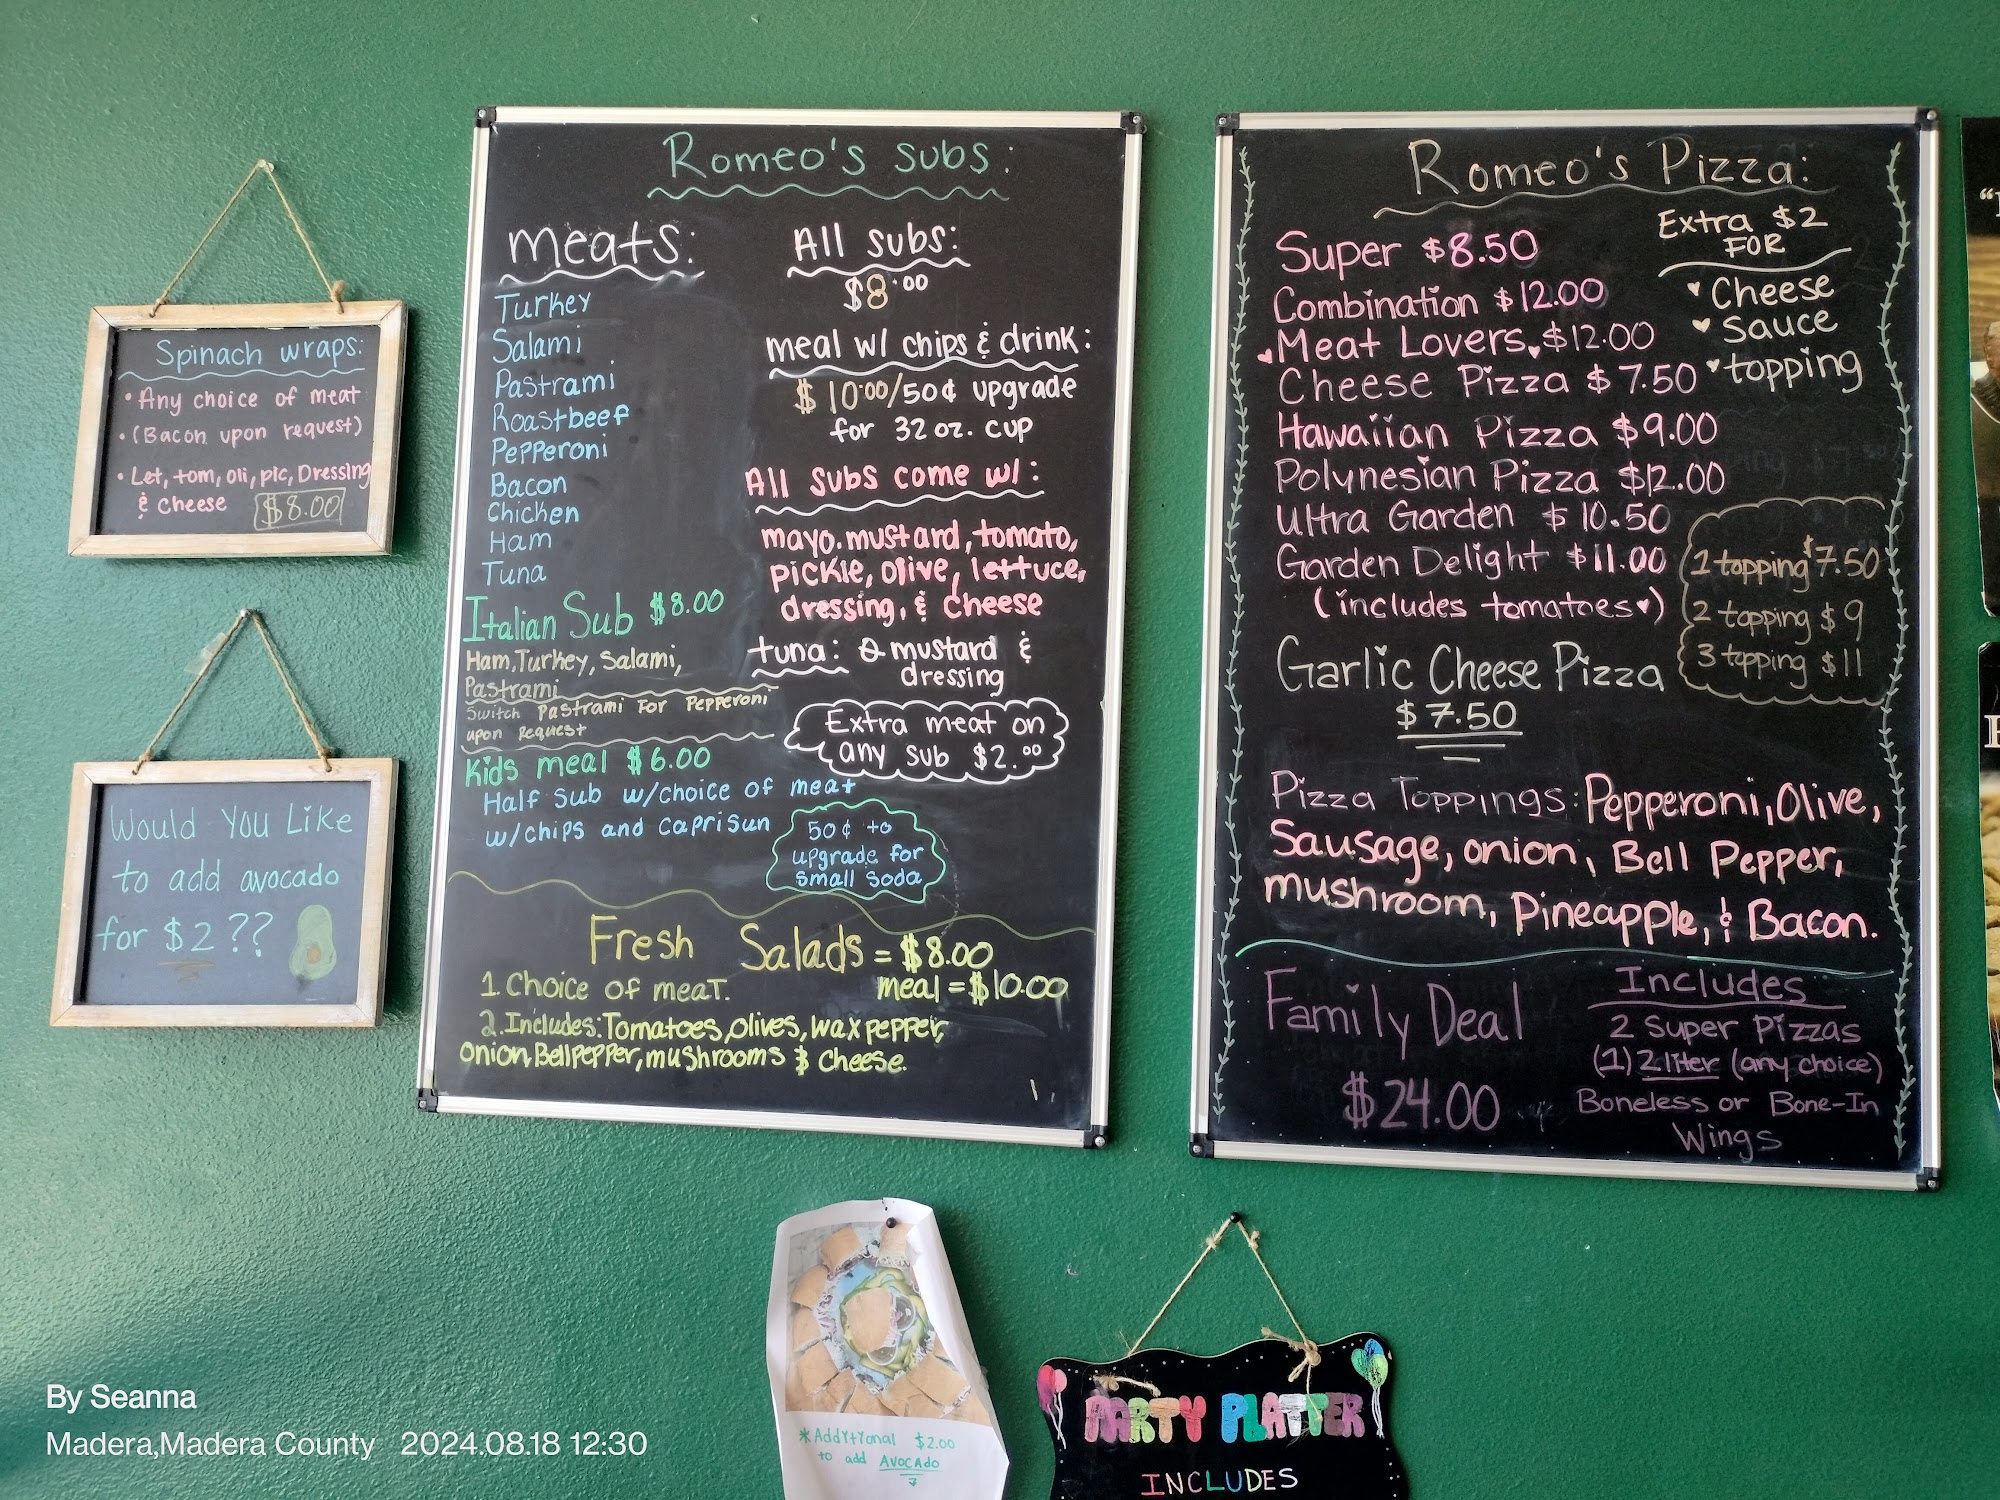 Spinach wraps:
• Any choice of meat
• (Bacon upon request)
• Let, tom, oli, pic, Dressing
& cheese $8.00
Would You Like
to add avocado
for $2??
Romeo's subs:
meats:
Turkey
Salami
Pastrami
Roastbeef
Pepperoni
Bacon
Chicken
Ham
Tuna
Italian Sub $8.00
Ham, Turkey, Salami,
Pastrami
Switch Pastrami For Pepperoni
upon Request
Kids meal $6.00
Half Sub w/choice of meat
w/chips and caprisun
50¢ to
upgrade for
small soda
All subs:
$8.00
meal w/ chips & drink:
$10.00/50¢ upgrade
for 32 oz. cup
All subs come w/:
mayo. mustard, tomato,
pickle, olive, lettuce,
dressing, & cheese
tuna: Ө mustard &
dressing
Extra meat on
any sub $2.00
Fresh Salads = $8.00
1. Choice of meat. meal = $10.00
2. Includes: Tomatoes, olives, wax pepper,
onion, Bellpepper, mushrooms $ cheese.
Romeo's Pizza:
Super $8.50
Combination $12.00
Meat Lovers $12.00
Cheese Pizza $7.50
Hawaiian Pizza $9.00
Polynesian Pizza $12.00
Ultra Garden $10.50
Garden Delight $11.00
(includes tomatoes♥)
Extra $2
FOR
♥ Cheese
♥ sauce
♥ topping
1 topping $7.50
2 topping $9
3 topping $11
Garlic Cheese Pizza
$7.50
Pizza Toppings: Pepperoni, Olive,
Sausage, onion, Bell Pepper,
mushroom, Pineapple, & Bacon.
Family Deal
$24.00
Includes
2 Super Pizzas
(1) 2 liter (any choice)
Boneless or Bone-In
Wings
*Addytyonal $2.00
to add AVOCADO
PARTY PLATTER
INCLUDES
By Seanna
Madera,Madera County 2024.08.18 12:30